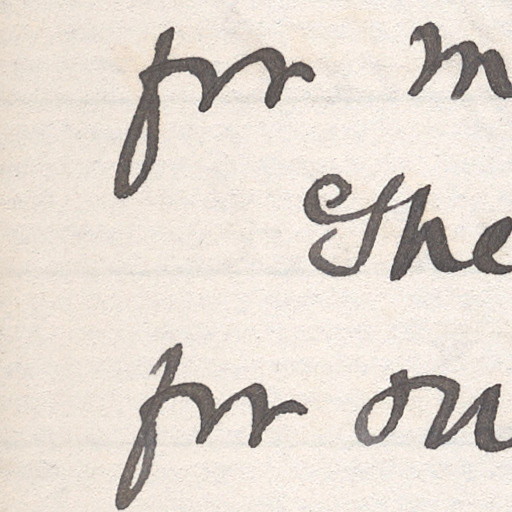 for m
The
for ou